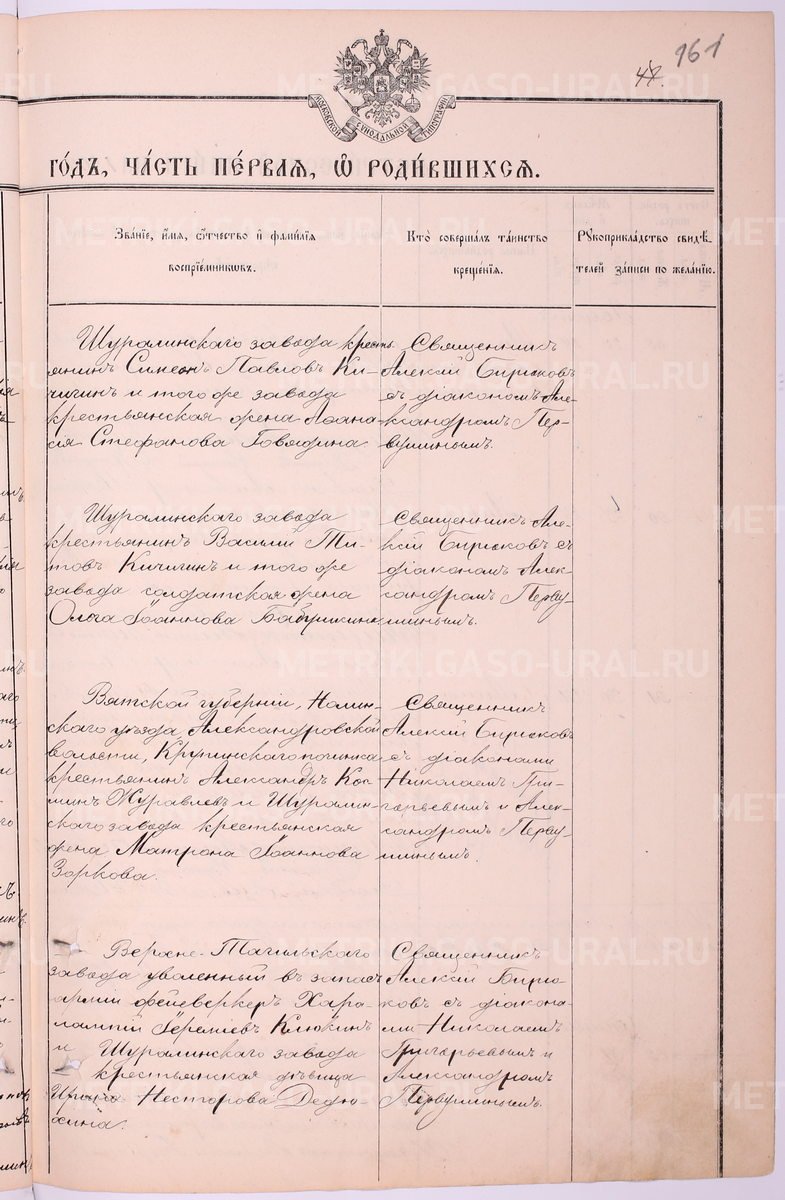 47.
161
МОСКОВСКОЙ СѴНОДАЛЬНОЙ ТИПОГРАФІИ
го́дъ, ча́сть пе́рваѧ, ѽ роди́вшихсѧ.
Зва́нїе, и҆́мѧ, ѻ҆́тчество и҆ фами́лїѧ
воспрїе́мникѡвъ.
Кто̀ соверша́лъ та́инство
креще́нїѧ.
Рꙋкоприкла́дство свидѣ́-
телей за́писи по жела́нїю.
Шуралинскаго завода кресть-
янин Симеонъ Павловъ Ки-
чигинъ и того же завода
крестьянская жена Афана-
сія Стефанова Говядина.
Священникъ
Алексій Бирюковъ
съ діакономъ Але-
ксандромъ Пер-
вушинымъ.
Шуралинскаго завода
крестьянинъ Василій Ти-
товъ Кичигинъ и того же
завода солдатская жена
Ольга Іоаннова Бабушкина
Священникъ Але-
ксій Бирюковъ съ
діакономъ Алек-
сандромъ Перву-
шинымъ.
Вятской губерніи, Нолин-
скаго уѣзда, Александровской
волости, Крупинскаго починка
крестьянинъ Александръ Кос-
минъ Журавлевъ и Шуралин-
скаго завода крестьянская
жена Матрона Іоаннова
Заркова.
Священникъ
Алексій Бирюковъ
съ діаконами
Николаемъ Гри-
горьевымъ и Алек-
сандромъ Перву-
шинымъ.
Верхне-Тагильскаго
завода уволенный въ запасъ
арміи фейерверкеръ Хара-
лампій Іереміевъ Клюкинъ
и Шуралинскаго завода
крестьянская дѣвица
Ирина Несторова Дедю-
хина.
Священникъ
Алексій Бирю-
ковъ съ діакона-
ми Николаемъ
Григорьевымъ и
Александромъ
Первушинымъ.
METRIKI.GASO-URAL.RU